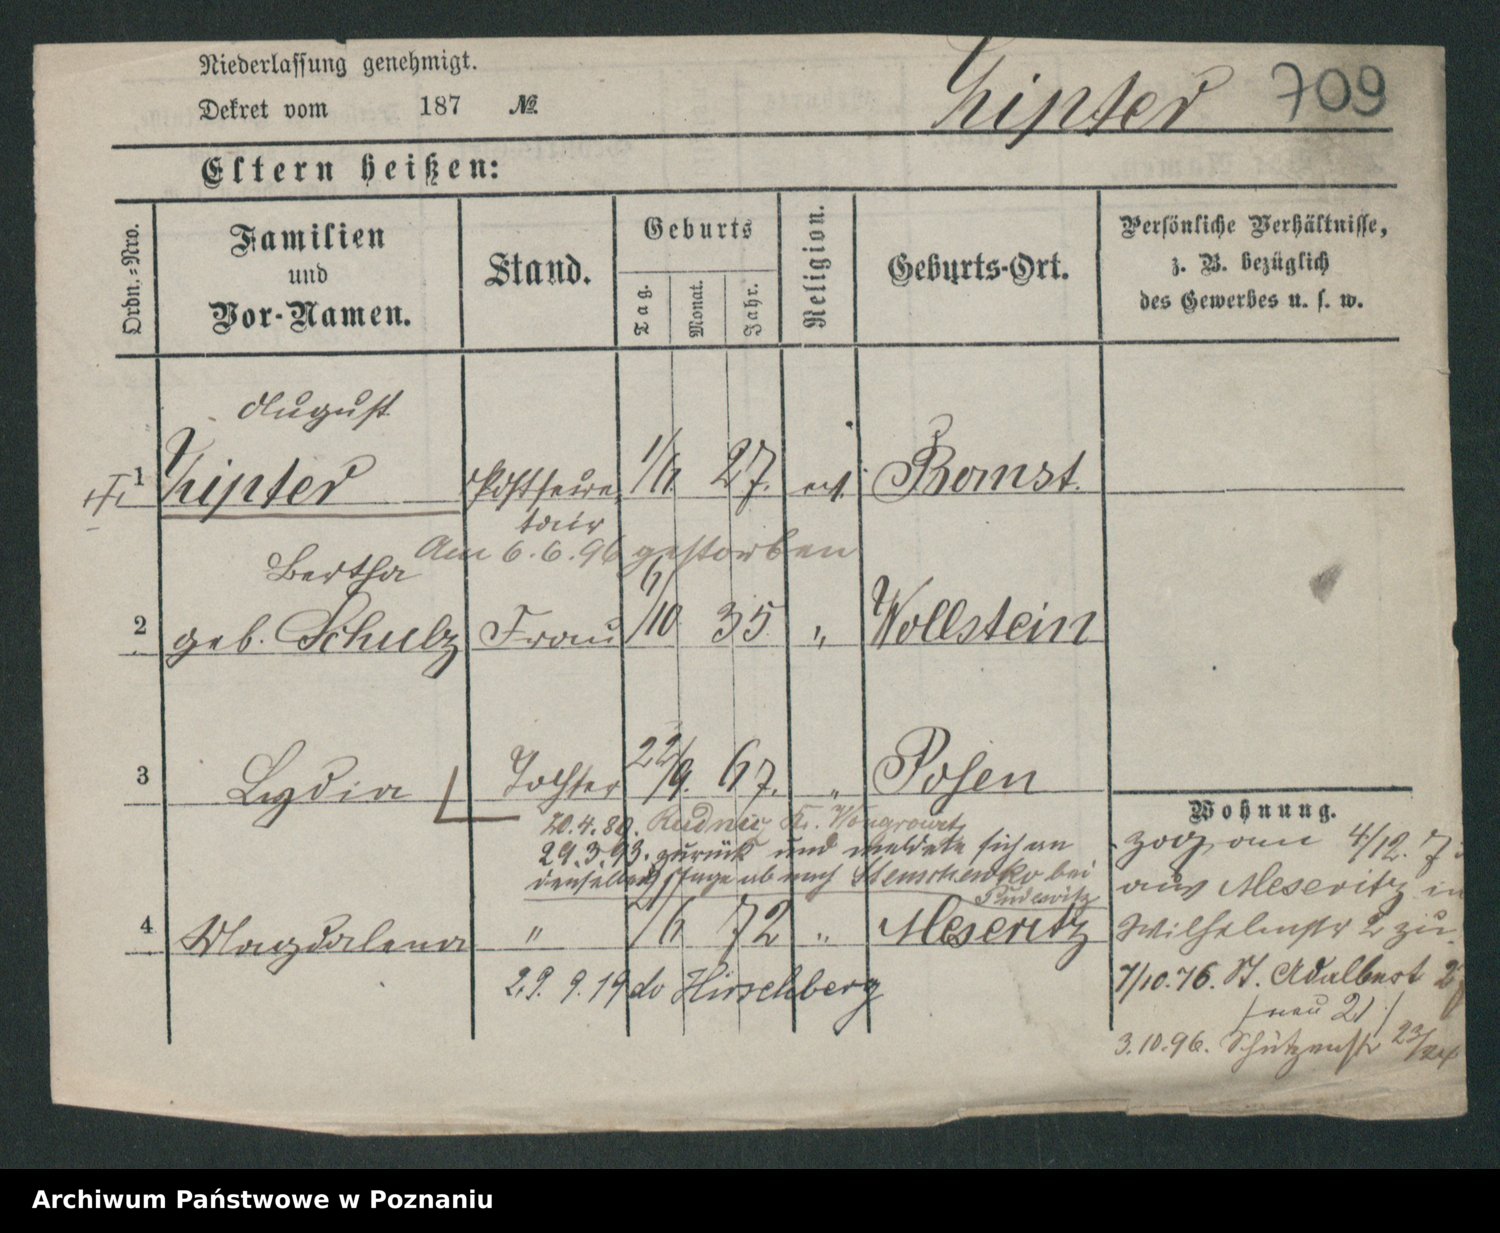 Niederlassung genehmigt.
Dekret vom 187 №
Zipter 709
Eltern heißen:
Ordn.-Nro.
Familien
und
Vor-Namen.
Stand.
Geburts
Tag.
Monat.
Jahr.
Religion.
Geburts-Ort.
Persönliche Verhältnisse,
z. B. bezüglich
des Gewerbes u. s. w.
August
1 Zipter Postsecre- 1/6. 27. ev. Bomst.
tair
Am 6.6.96 gestorben
Bertha
2 geb. Schulz Frau 6/10 35 „ Wollstein
3 Lydia Tochter 22/9. 67. „ Posen
Wohnung.
20.4.80. Rudnicz Kr. Wongrowitz
29.3.93. zurück und meldete sich an
denselben Tage ab nach bei
Pudewitz
4 Magdalena " /6 72 „ Meseritz
29. 9. 19 do Hirschberg
zog am 4/12. 7
aus Meseritz in
Wilhelmstr 2 zu.
7/10.76. St. Adalbert 2
(neu 21)
3.10.96. Schützenstr 23/24
Archiwum Państwowe w Poznaniu